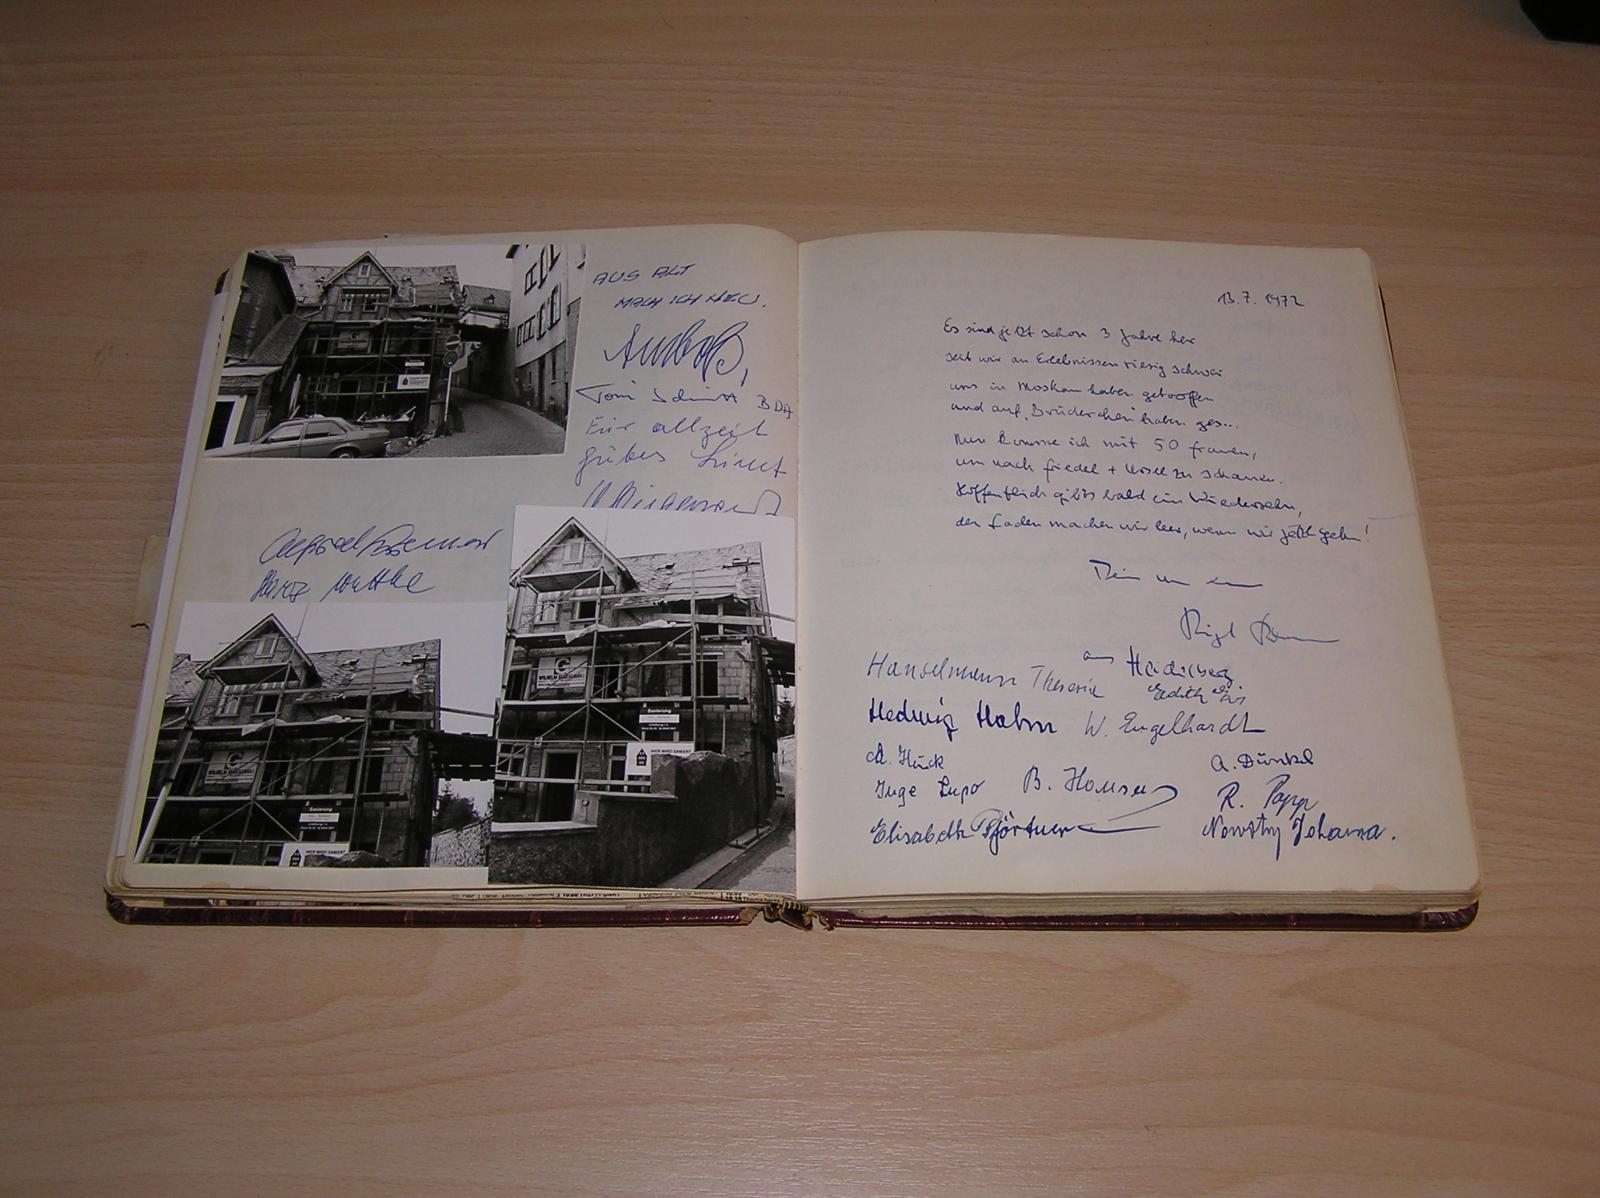 AUS ALT
MACH ICH NEU.
Toni Schmitt BDA
Für allzeit
gutes
WILHELM
Sanierung
HIER WIRD SANIERT
Sanierung
HIER WIRD SANIERT
13.7.1972
Es sind jetzt schon 3 Jahre her
seit wir an Erlebnissen riesig schwer
uns in Moskau haben getroffen
und auf "Brüderchen" haben ges...
Nun komme ich mit 50 Frauen,
um nach Friedel + Ursel zu schauen.
Hoffentlich gibts bald ein Wiedersehn,
den Laden machen wir leer, wenn wir jetzt gehn!
aus Heidelberg
Hanselmann Theresia
Edith
Hedwig Hahn W. Engelhardt
A. Huck A. Dünkel
Inge Lupo B. Hauser R. Papp
Elisabeth Pförtner Nowotny Johanna.